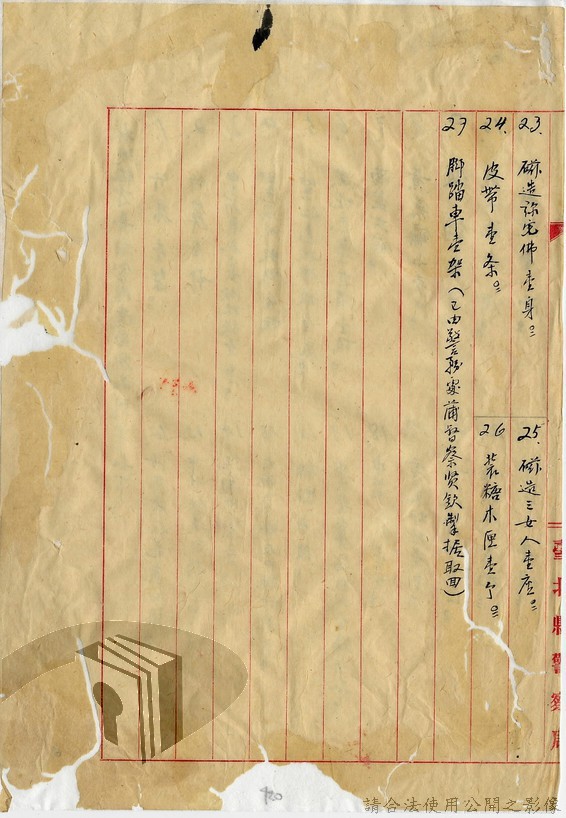 臺北縣警察局
23. 磁造弥宛佛壹身。
25. 磁造三女人壹座。
24. 皮帶壹条。
26 裝糖木匣壹个。
27 脚踏車壹架(已由警務處蒲督察贤欽掣据取回)
420
請合法使用公開之影像